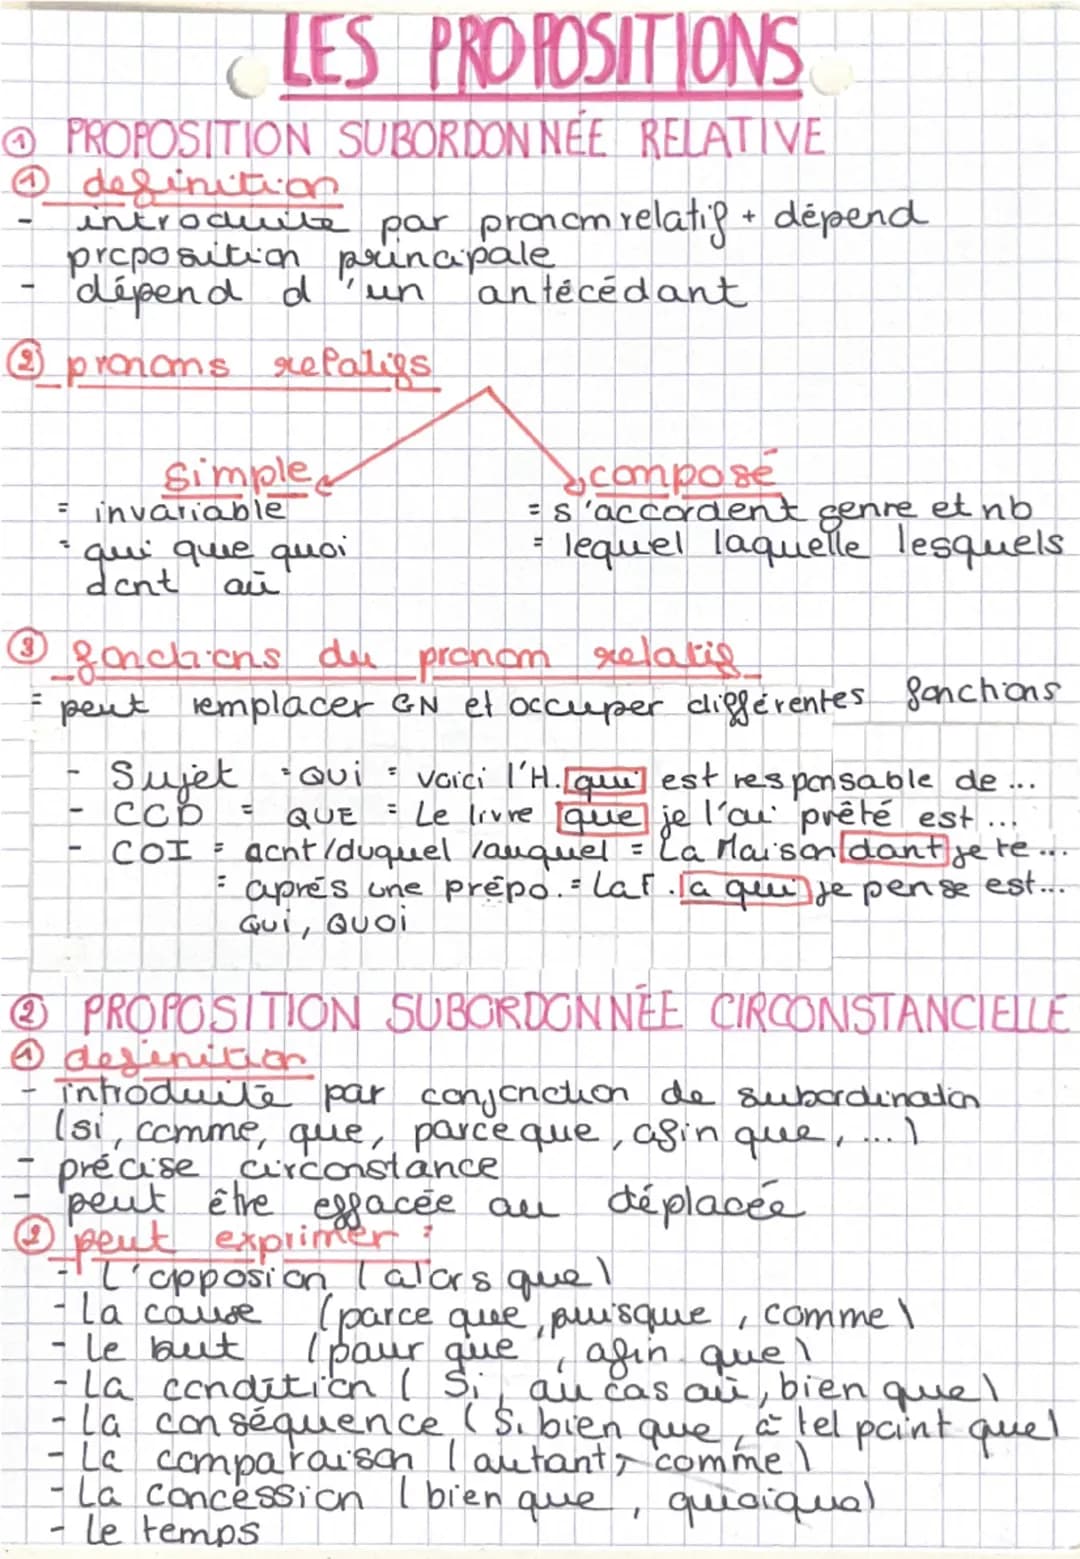 LES PROPOSITIONS
① PROPOSITION SUBORDONNÉE RELATIVE
① definition
- introduite par pronom relatif + dépend
proposition principale
- dépend d'un antécédant
② pronoms relatifs
simple
composé
= invariable
= s'accordent genre et nb
= qui que quoi
= lequel laquelle lesquels
dont où
③ fonctions du pronom relatif
= peut remplacer GN et occuper différentes fonctions
- Sujet = QUI = voici l'H. qui est responsable de ...
- COD = QUE = Le livre que je l'ai prêté est ...
- COI = dont/duquel /auquel = La Maison dont je te ...
= aprés une prépo. = La F. à qui je pense est...
QUI, QUOI
② PROPOSITION SUBORDONNÉE CIRCONSTANCIELLE
① definition
- introduite par conjonction de subordination
(si, comme, que, parce que, afin que, ...)
- précise circonstance
- peut être effacée ou déplacée
② peut exprimer :
- L'opposion (alors que)
- La cause (parce que, puisque, comme)
- Le but (pour que, afin que)
- La condition (Si, au cas où, bien que)
- La conséquence (Si bien que, à tel point que)
- La comparaison (autant, comme)
- La concession (bien que, quoiqua)
- Le temps